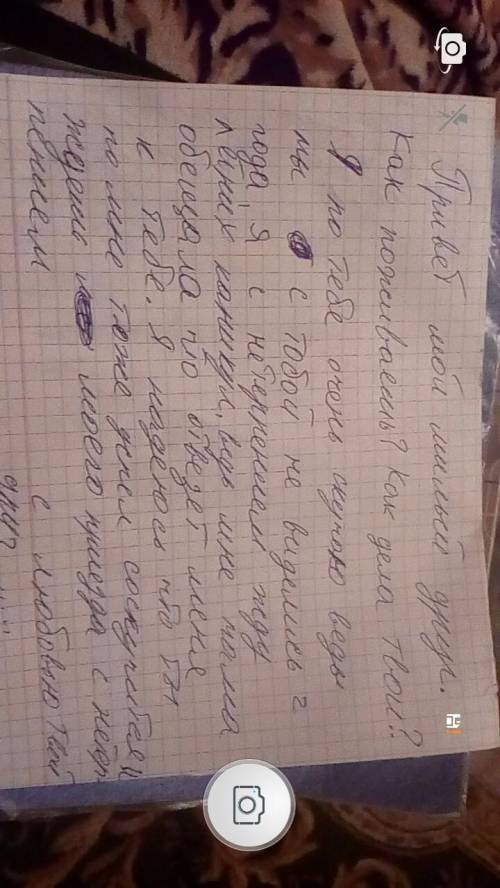 Привет мой милый друг.
Как поживаешь? Как дела твои?
Я по тебе очень скучаю ведь
мы с тобой не видились 2
года я с нетерпением жду
летних каникул, ведь мне мама
обещала что отвезёт меня
к тебе. Я надеюсь что ты
по мне тоже успел соскучится и
ждешь моего приезда с нетер
пением
с любовью твой
друг